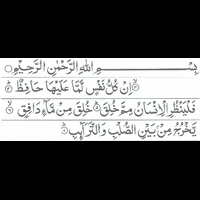 بِسْمِ اللّٰهِ الرَّحْمٰنِ الرَّحِيْمِ
اِنْ كُلُّ نَفْسٍ لَّمَّا عَلَيْهَا حَافِظٌ
فَلْيَنْظُرِ الْاِنْسَانُ مِمَّ خُلِقَ خُلِقَ مِنْ مَّآءٍ دَافِقٍ
يَّخْرُجُ مِنْۢ بَيْنِ الصُّلْبِ وَالتَّرَآئِبِ